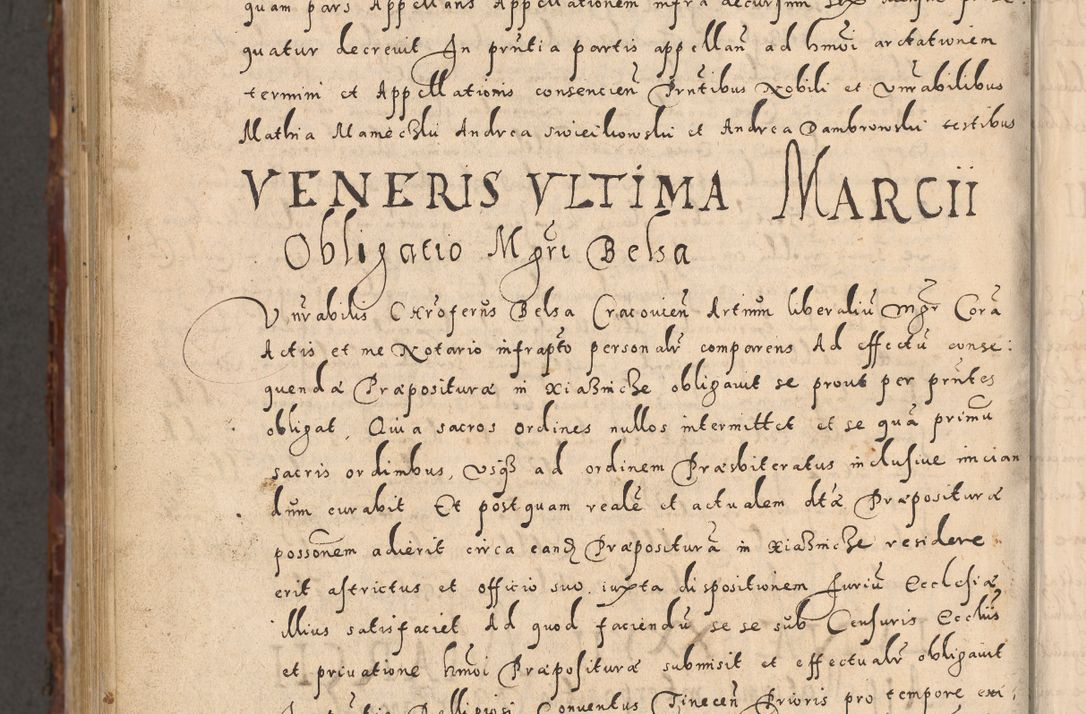 quam pars Appellans Appellationem infra decursum sex
quatur decrevit In pr̃ntia partis appellañ ad hm̃oi arctationem
termini et Appellationis consencieñ Pr̃ntibus Nobili et Vnr̃abilibus
Mathia Andrea et Andrea Dambrowski testibus
VENERIS VLTIMA MARCII
Obligatio Mgr̃i Belsa
Vnr̃abilis Belsa Cracovieñ Artium liberaliũ Mgr̃ Corã
Actis et me Notario infrapt̃o personalr̃ comparens Ad effectũ conse:
quendæ Præposituræ in Xiaznicze obligavit se prout per pr̃ntes
obligat, Quia sacros ordines nullos intermittet et se quã primũ
sacris ordinibus, usq3 ad ordinem Præsbiteratus inclusive inician
dum curabit Et postquam realẽ et actualem dt̃æ Præposituræ
possõnem adierit circa eand Præpositurã in Xiaznicze residere
erit astrictus et officio suo iuxta dispositionem Iuriũ Ecclesiæ
illius satisfaciet Ad quod faciendũ se se sub Censuris Ecclĩis
et privatione hm̃oi Præposituræ submisit et effectualr̃ obligavit
Relligiosi Conventus Tinecen̄ Prioris pro tempore exi: